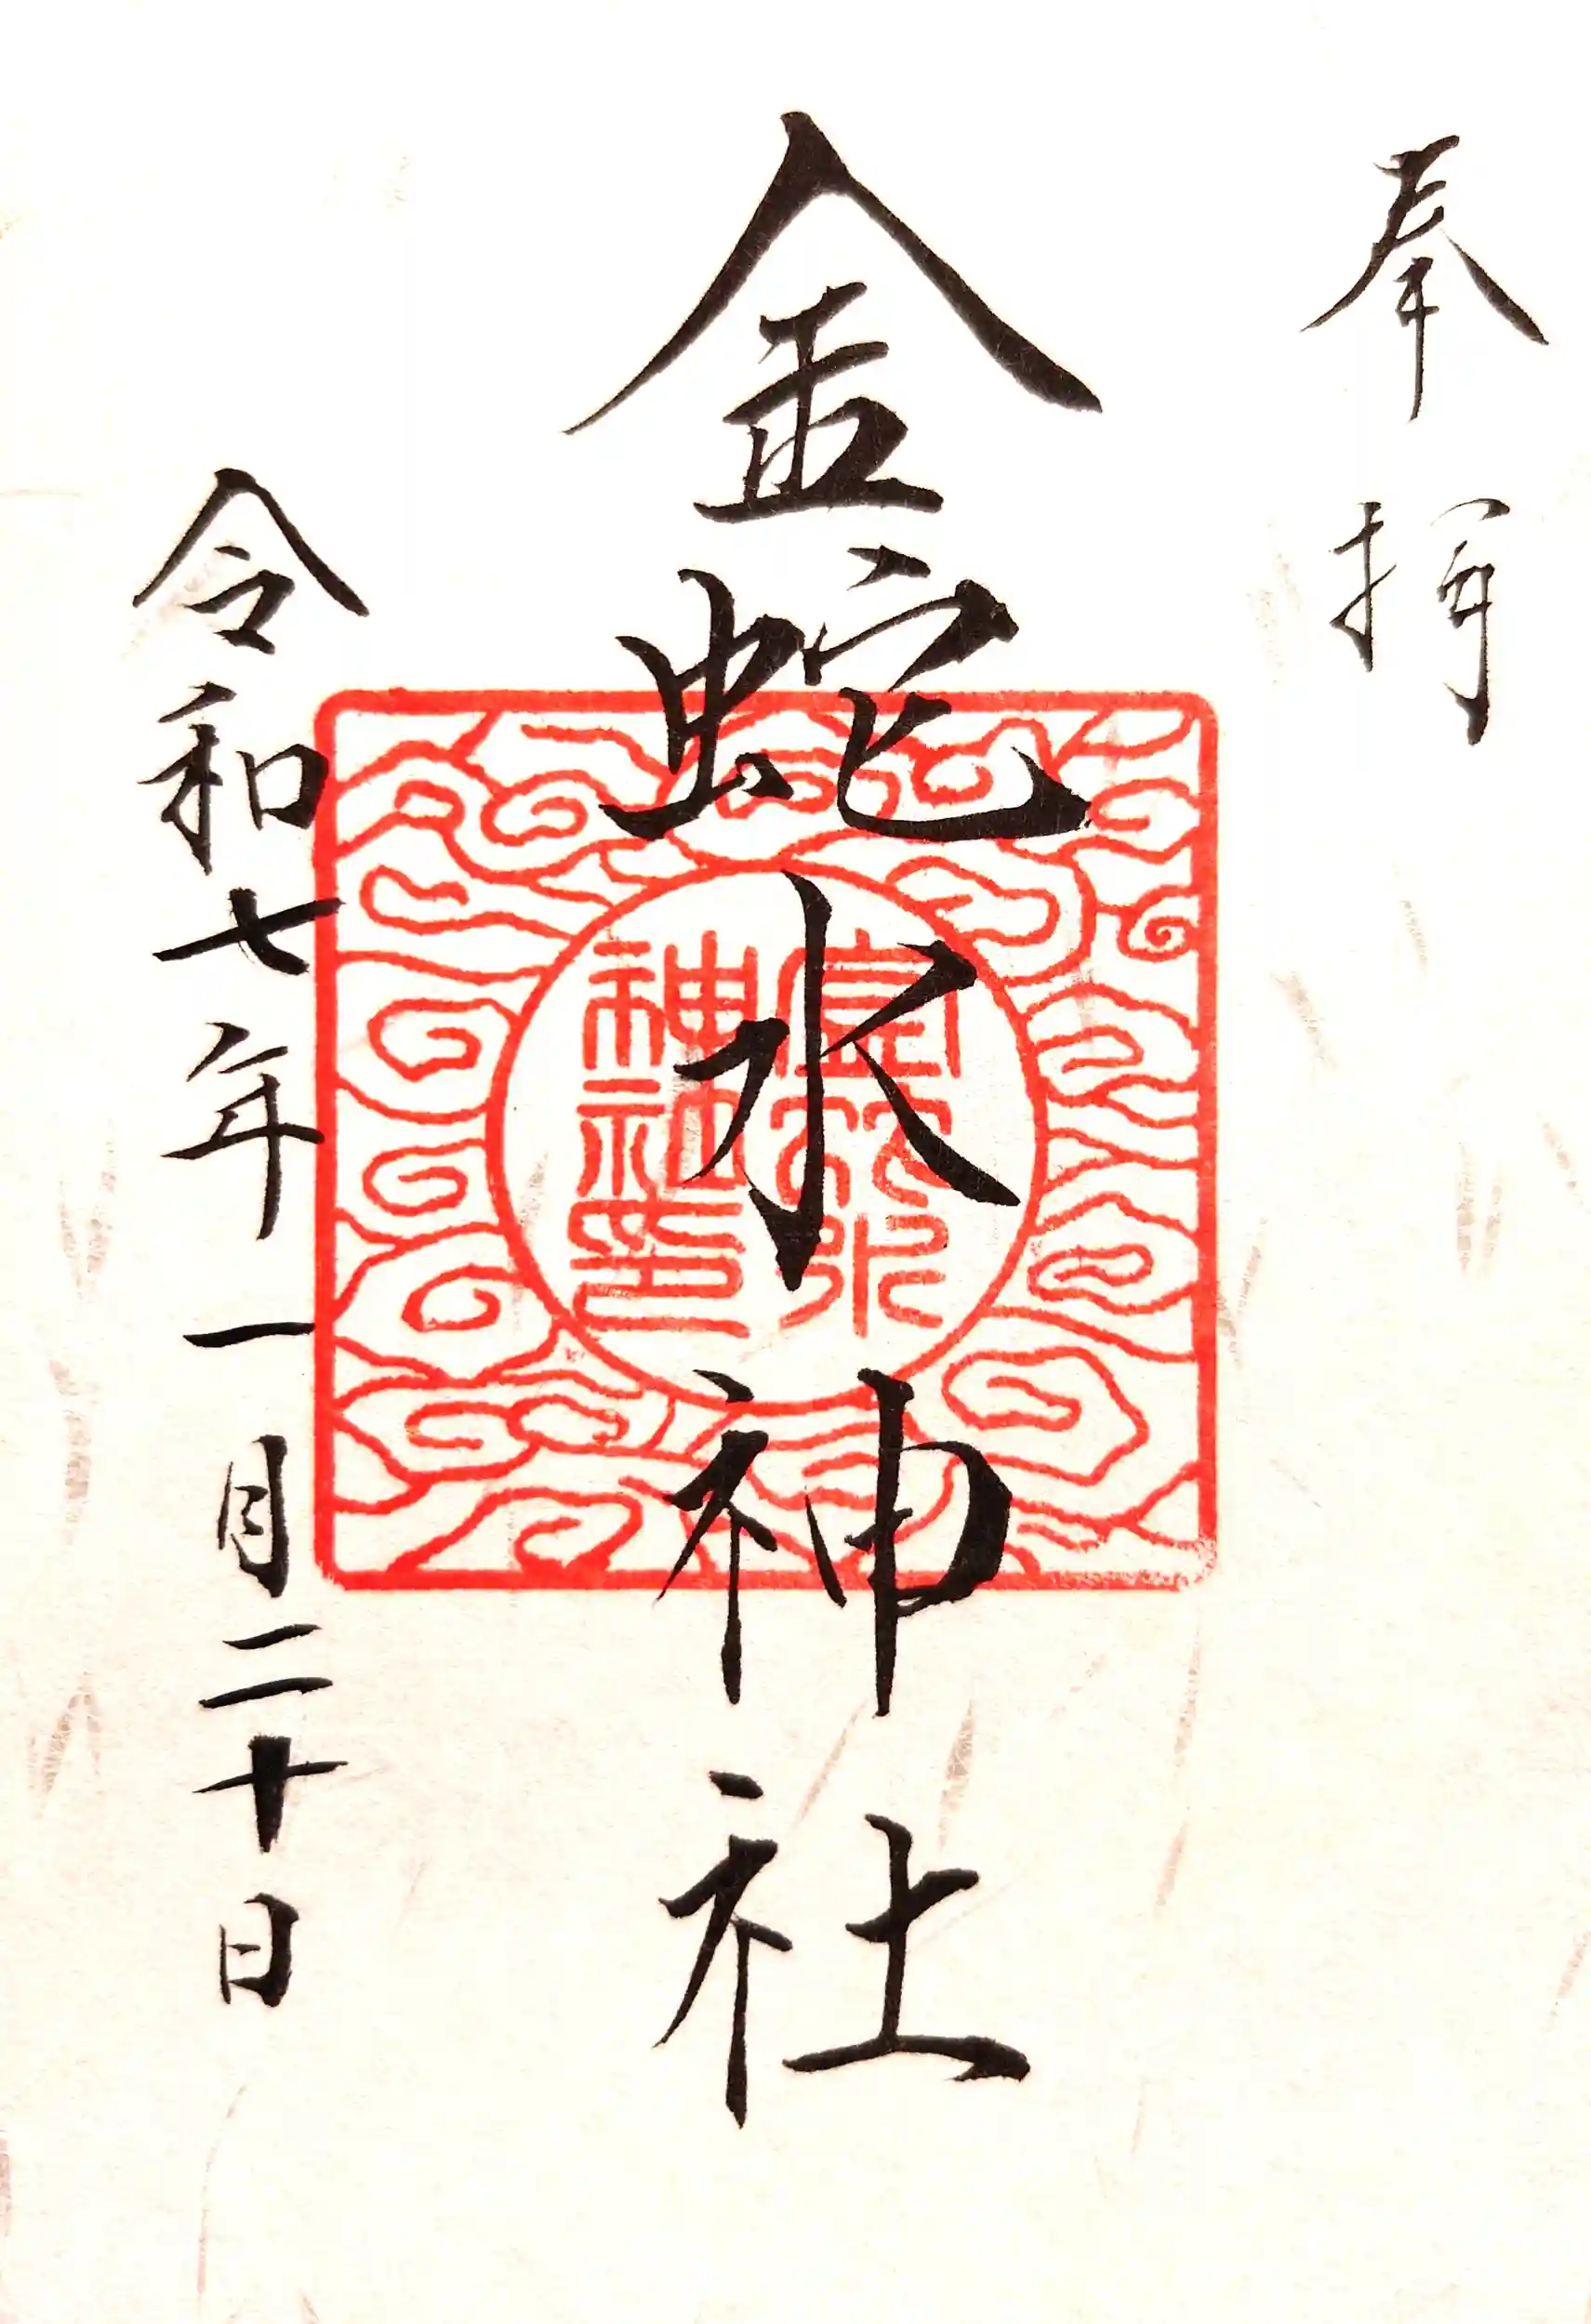 奉拝
金蛇水神社
金蛇水
神社印
令和七年一月二十日